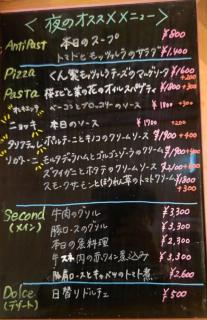 < 夜のオススメメニュー >
AntiPast 本日のスープ ¥800
トマトとモッツァレラのサラダ ¥1,400
Pizza くん製モッツァレラチーズのマルゲリータ ¥1600 +200
Pasta 桜エビと菜の花のオイルスパゲティ ¥1800 +300
オレキエッテ ベーコンとブロッコリーのソース ¥1800 +300
ニョッキ 本日のソース ¥1700 +200
タリアテレ ポルチーニとキノコのクリームソース ¥1900 +400
リガトーニ モルタデラハムとゴルゴンゾーラのクリーム ¥1900 +400
ズワイガニとホタテのクリームソース ¥2100 +600
スモークサーモンとほうれん草のトマトクリーム ¥1800 +300
Second (メイン) 牛肉のグリル ¥3,300
豚ロースのグリル ¥3,300
本日の魚料理 ¥2,300
牛 肉の赤ワイン煮込み ¥3,300
豚肩ロースとキャベツのトマト煮 ¥2,600
Dolce (デザート) 日替りドルチェ ¥500